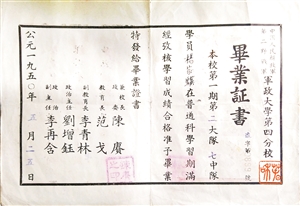 軍政大學第四分校
畢業証書
本校第一期第二大隊七中隊
學員楊家驥在普通科學習期滿
經攷核學習成績合格准予畢業
特發給畢業證書
兼校長
政委 陳賡
教育長 范戈
副教育長 李青林
政治主任 劉增鈺
政治副主任 李再含
公元一九五〇年五月二五日